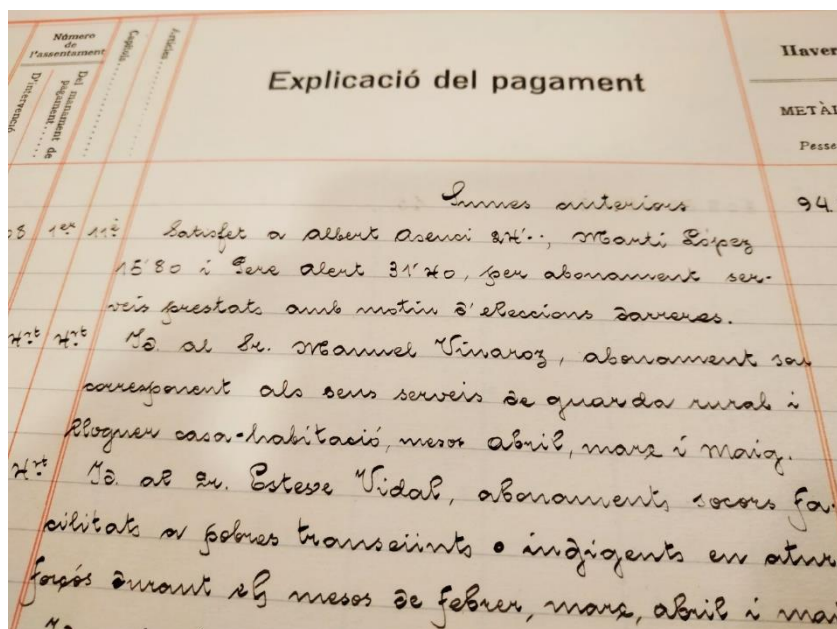 Número
de
l'assentament
D'intervenció
Del manament de
pagament......
Capítols
Articles
Explicació del pagament
Haver
METÀL
Pesse
Sumes anteriors 94
08 1er 11è Satisfet a Albert Asenci 24'-, Martí López
15'80 i Pere Alert 31'40, per abonament ser-
veis prestats amb motiu d'eleccions darreres.
4rt 4rt Id. al Sr. Manuel Vinaroz, abonament sou
corresponent als seus serveis de guarda rural i
lloguer casa-habitació, mesos abril, març i maig.
4rt Id. al Sr. Esteve Vidal, abonaments socors fa-
cilitats a pobres transeünts o indigents en atur
forçós durant els mesos de febrer, març, abril i mai